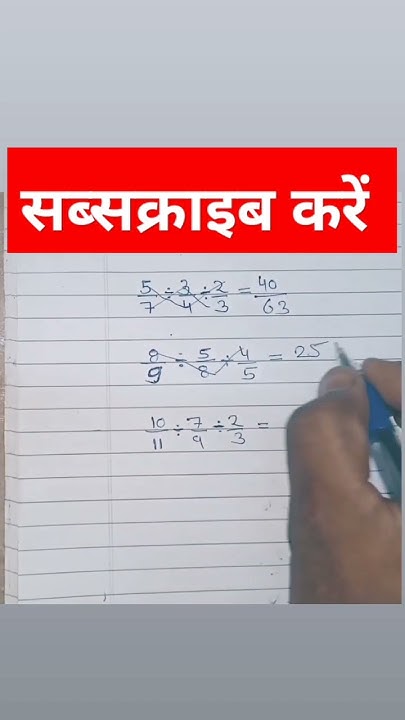 सब्सक्राइब करें
5/7 ÷ 3/4 ÷ 2/3 = 40/63
8/9 ÷ 5/8 ÷ 4/5 = 25
10/11 ÷ 7/9 ÷ 2/3 =